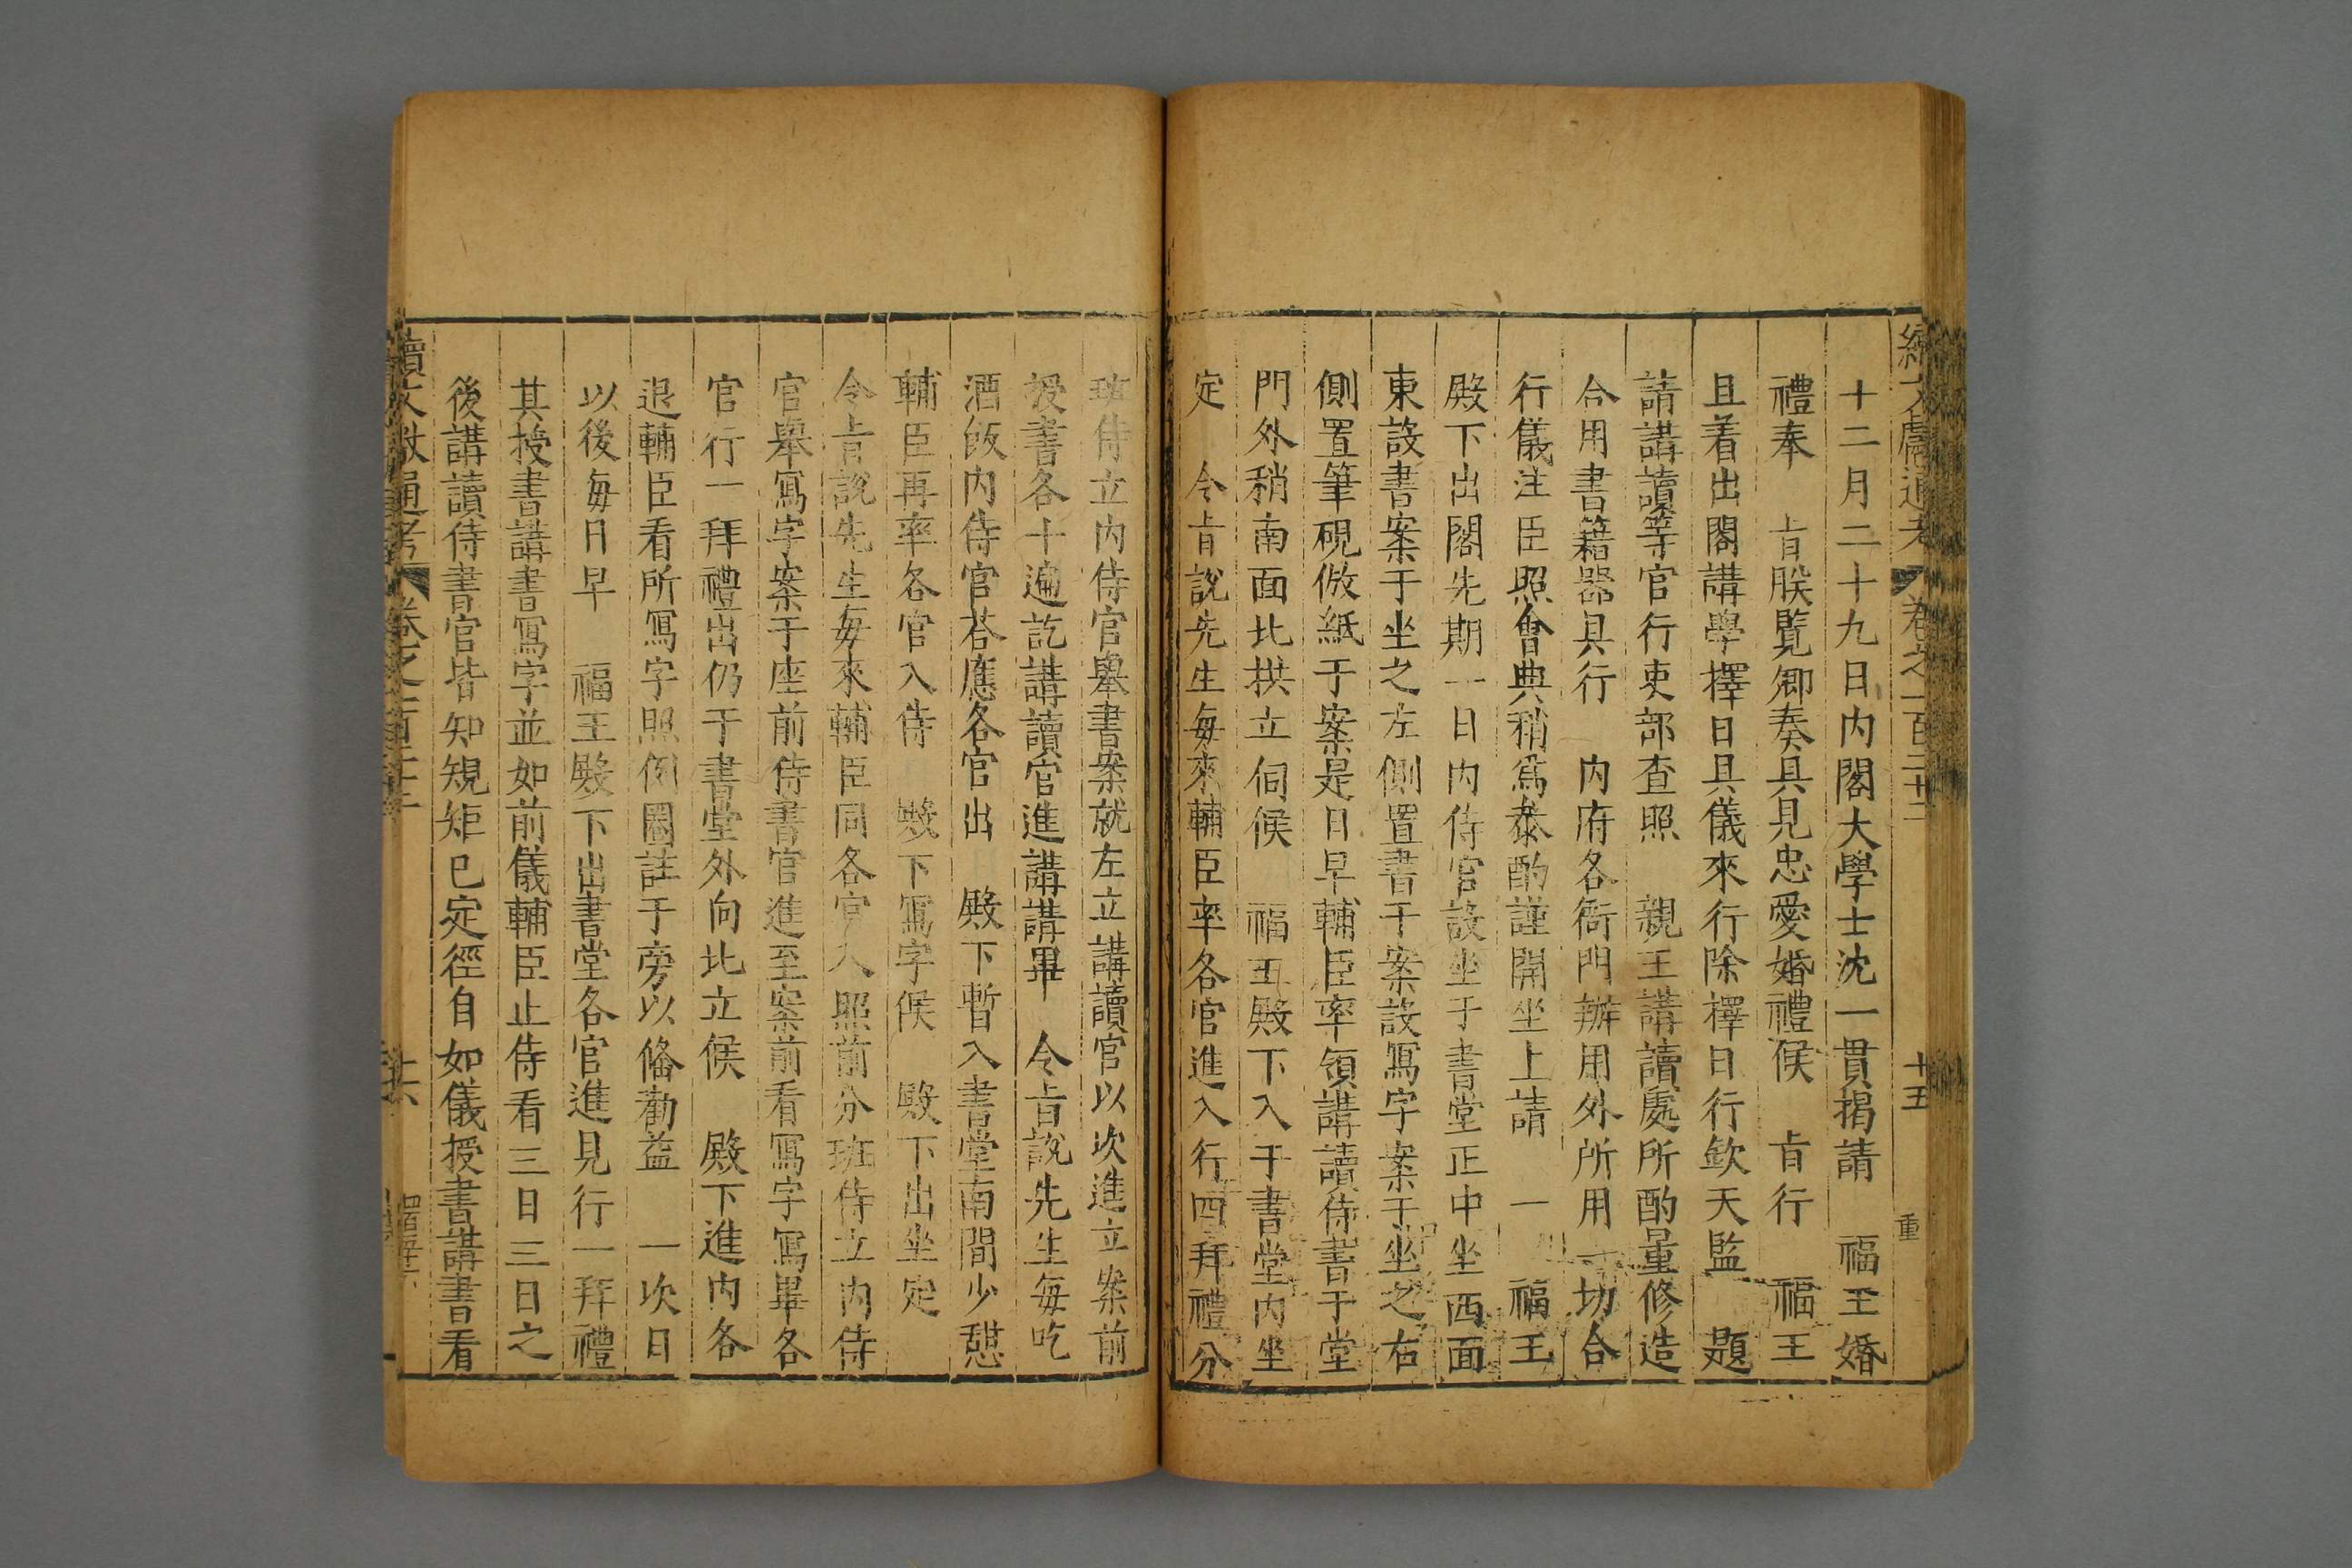 續文獻通考 卷之一百三十二 十五 重
十二月二十九日内閣大學士沈一貫揭請 福王婚
禮奉 㫖朕覽卿奏具見忠愛婚禮候 㫖行 福王
且着出閣講學擇日具儀來行除擇日行欽天監 題
請講讀等官行吏部查照 親王講讀處所酌量修造
合用書籍器具行 内府各衙門辦用外所用一切合
行儀注臣照會典稍爲叅酌謹開坐上請 一 福王
殿下出閣先期一日内侍官設坐于書堂正中坐西面
東設書案于坐之左側置書于案設寫字案于坐之右
側置筆硯倣紙于案是日早輔臣率領講讀侍書于堂
門外稍南面北拱立伺候 福王殿下入于書堂内坐
定 令㫖說先生每來輔臣率各官進入行四拜禮分
班侍立内侍官舉書案就左立講讀官以次進立案前
授書各十遍訖講讀官進講講畢 令㫖說先生每吃
酒飯内侍官荅應各官出 殿下暫入書堂南間少憇
輔臣再率各官入侍 殿下寫字候 殿下出坐定
令㫖說先生每來輔臣同各官入照前分班侍立内侍
官舉寫字案于座前侍書官進至案前看寫字寫畢各
官行一拜禮出仍于書堂外向北立候 殿下進内各
退輔臣看所寫字照例圈註于旁以俻勸益 一次日
以後每日早 福王殿下出書堂各官進見行一拜禮
其授書講書寫字並如前儀輔臣止侍看三日三日之
後講讀侍書官皆知規矩已定徑自如儀授書講書看
續文獻通考 卷之一百三十二 十六